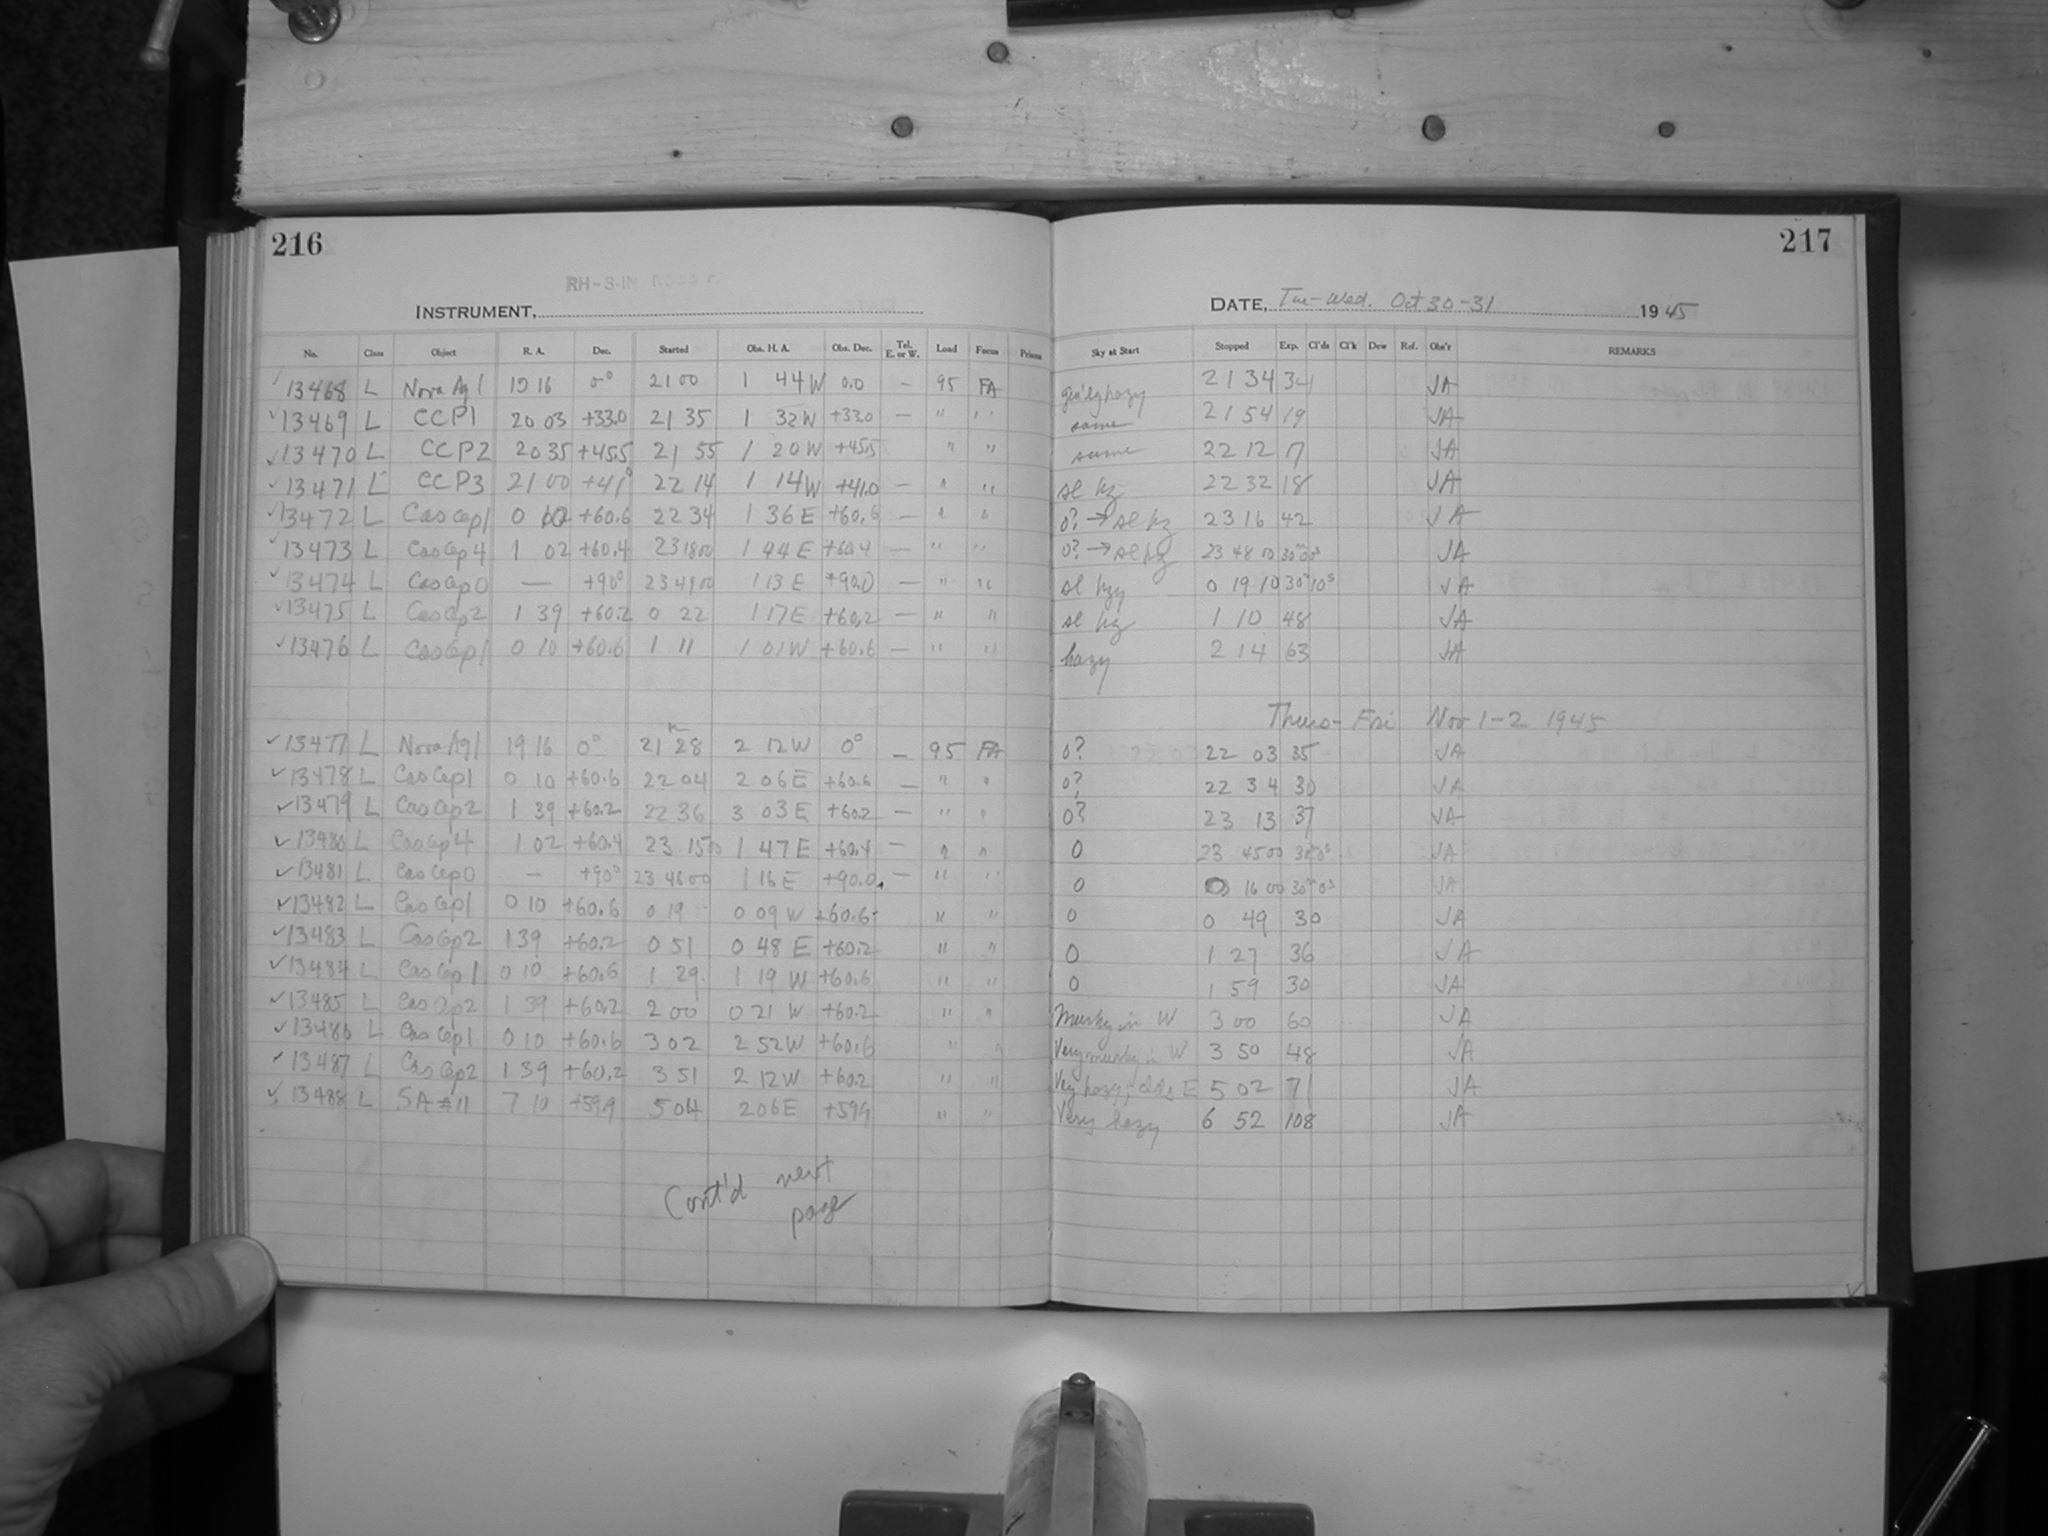 216
217
RH-3-IN
INSTRUMENT,
DATE, Tue-Wed. Oct 30-31 1945
No. Class Object R. A. Dec. Started Obs. H. A. Obs. Dec. Tel. E. or W. Load Focus Prisms Sky at Start Stopped Exp. Cl'ds Cl'k Dew Ref. Obs'r REMARKS
13468 L Nova Aql 19 16 0° 21 00 1 44 W 0.0 – 95 FA hazy 21 34 34 JA
13469 L CCP1 20 03 +33.0 21 35 1 32 W +33.0 – " " same 21 54 19 JA
13470 L CCP2 20 35 +45.5 21 55 1 20 W +45.5 " " same 22 12 17 JA
13471 L CCP3 21 00 +41° 22 14 1 14 W +41.0 – " " sl hz 22 32 18 JA
13472 L CasCep1 0 10 +60.6 22 34 1 36 E +60.6 – " " 0? → sl hz 23 16 42 JA
13473 L CasCep4 1 02 +60.4 23 18 00 1 44 E +60.4 – " " 0? → sl hz 23 48 00 30m 00s JA
13474 L CasCep0 — +90° 23 49 00 1 13 E +90.0 – " " sl hzy 0 19 10 30m 10s JA
13475 L CasCep2 1 39 +60.2 0 22 1 17 E +60.2 – " " sl hz 1 10 48 JA
13476 L CasCep1 0 10 +60.6 1 11 1 01 W +60.6 – " " hazy 2 14 63 JA
Thurs-Fri Nov 1-2 1945
13477 L Nova Aql 19 16 0° 21 28 2 12 W 0° – 95 FA 0? 22 03 35 JA
13478 L CasCep1 0 10 +60.6 22 04 2 06 E +60.6 – " " 0? 22 34 30 JA
13479 L CasCep2 1 39 +60.2 22 36 3 03 E +60.2 – " " 0? 23 13 37 JA
13480 L CasCep4 1 02 +60.4 23 15 00 1 47 E +60.4 – " " 0 23 45 00 30 0s JA
13481 L CasCep0 – +90° 23 46 00 1 16 E +90.0 – " " 0 0 16 00 30m 0s JA
13482 L CasCep1 0 10 +60.6 0 19 0 09 W +60.6 " " 0 0 49 30 JA
13483 L CasCep2 1 39 +60.2 0 51 0 48 E +60.2 " " 0 1 27 36 JA
13484 L CasCep1 0 10 +60.6 1 29 1 19 W +60.6 " " 0 1 59 30 JA
13485 L CasCep2 1 39 +60.2 2 00 0 21 W +60.2 " " Mursky in W 3 00 60 JA
13486 L CasCep1 0 10 +60.6 3 02 2 52 W +60.6 " " Very mursky in W 3 50 48 JA
13487 L CasCep2 1 39 +60.2 3 51 2 12 W +60.2 " " Very hazy, clds E 5 02 71 JA
13488 L SA #11 7 10 +59.9 5 04 2 06 E +59.9 " " Very hazy 6 52 108 JA
Cont'd next
page